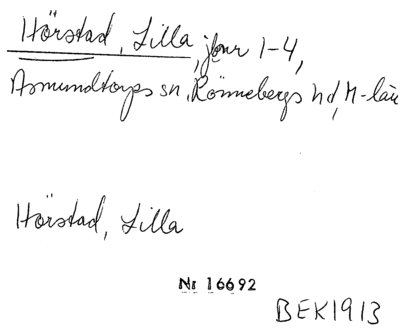 Hörstad, Lilla, jbnr 1-4,
Asmundtorps sn, Rönnebergs hd, M-län
Hörstad, Lilla
Nr 16692
BEK1913